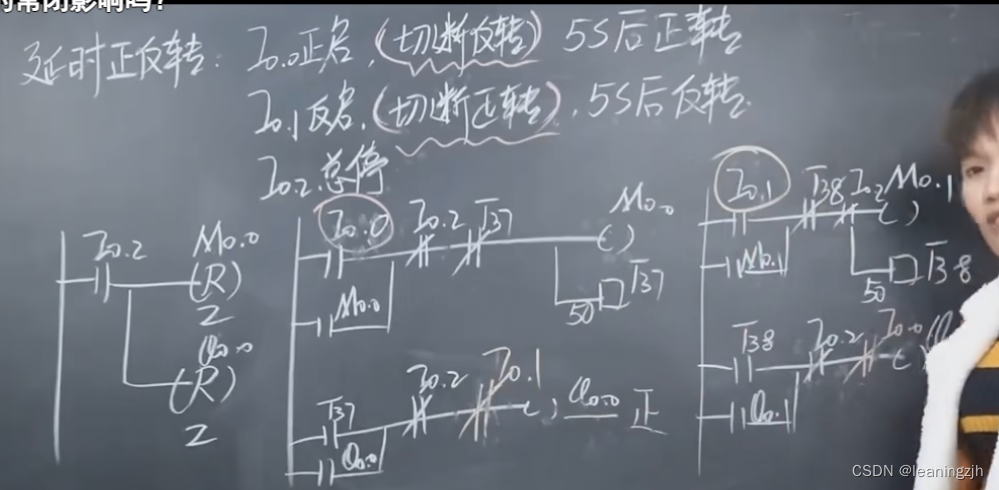 的常闭影响吗?
延时正反转: I0.0正启,(切断反转) 5S后正转
I0.1反启,(切断正转), 5S后反转.
I0.2.总停
I0.2 M0.0
(R)
2
Q0.0
(R)
2
I0.0 I0.2 T37 M0.0
( )
M0.0
50 T37
T37 I0.2 I0.1 ( ) Q0.0 正
Q0.0
I0.1 T38 I0.2 M0.1
( )
M0.1
50 T38
T38 I0.2 I0.0
Q0.1
CSDN @leaningzjh